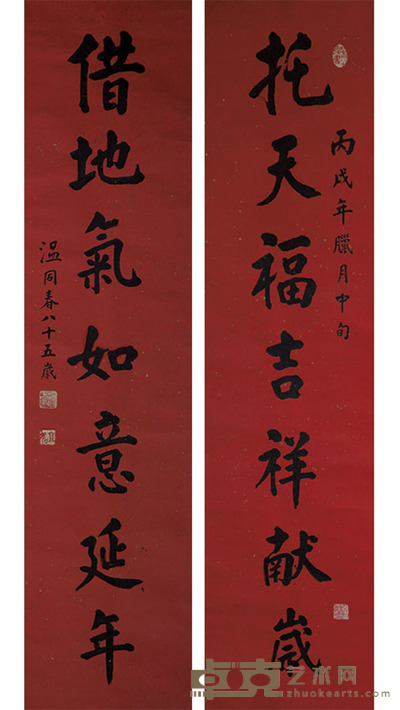 托天福吉祥献歲
丙戌年臘月中旬
借地氣如意延年
温同春八十五歲
卓克艺术网
zhuokearts.com